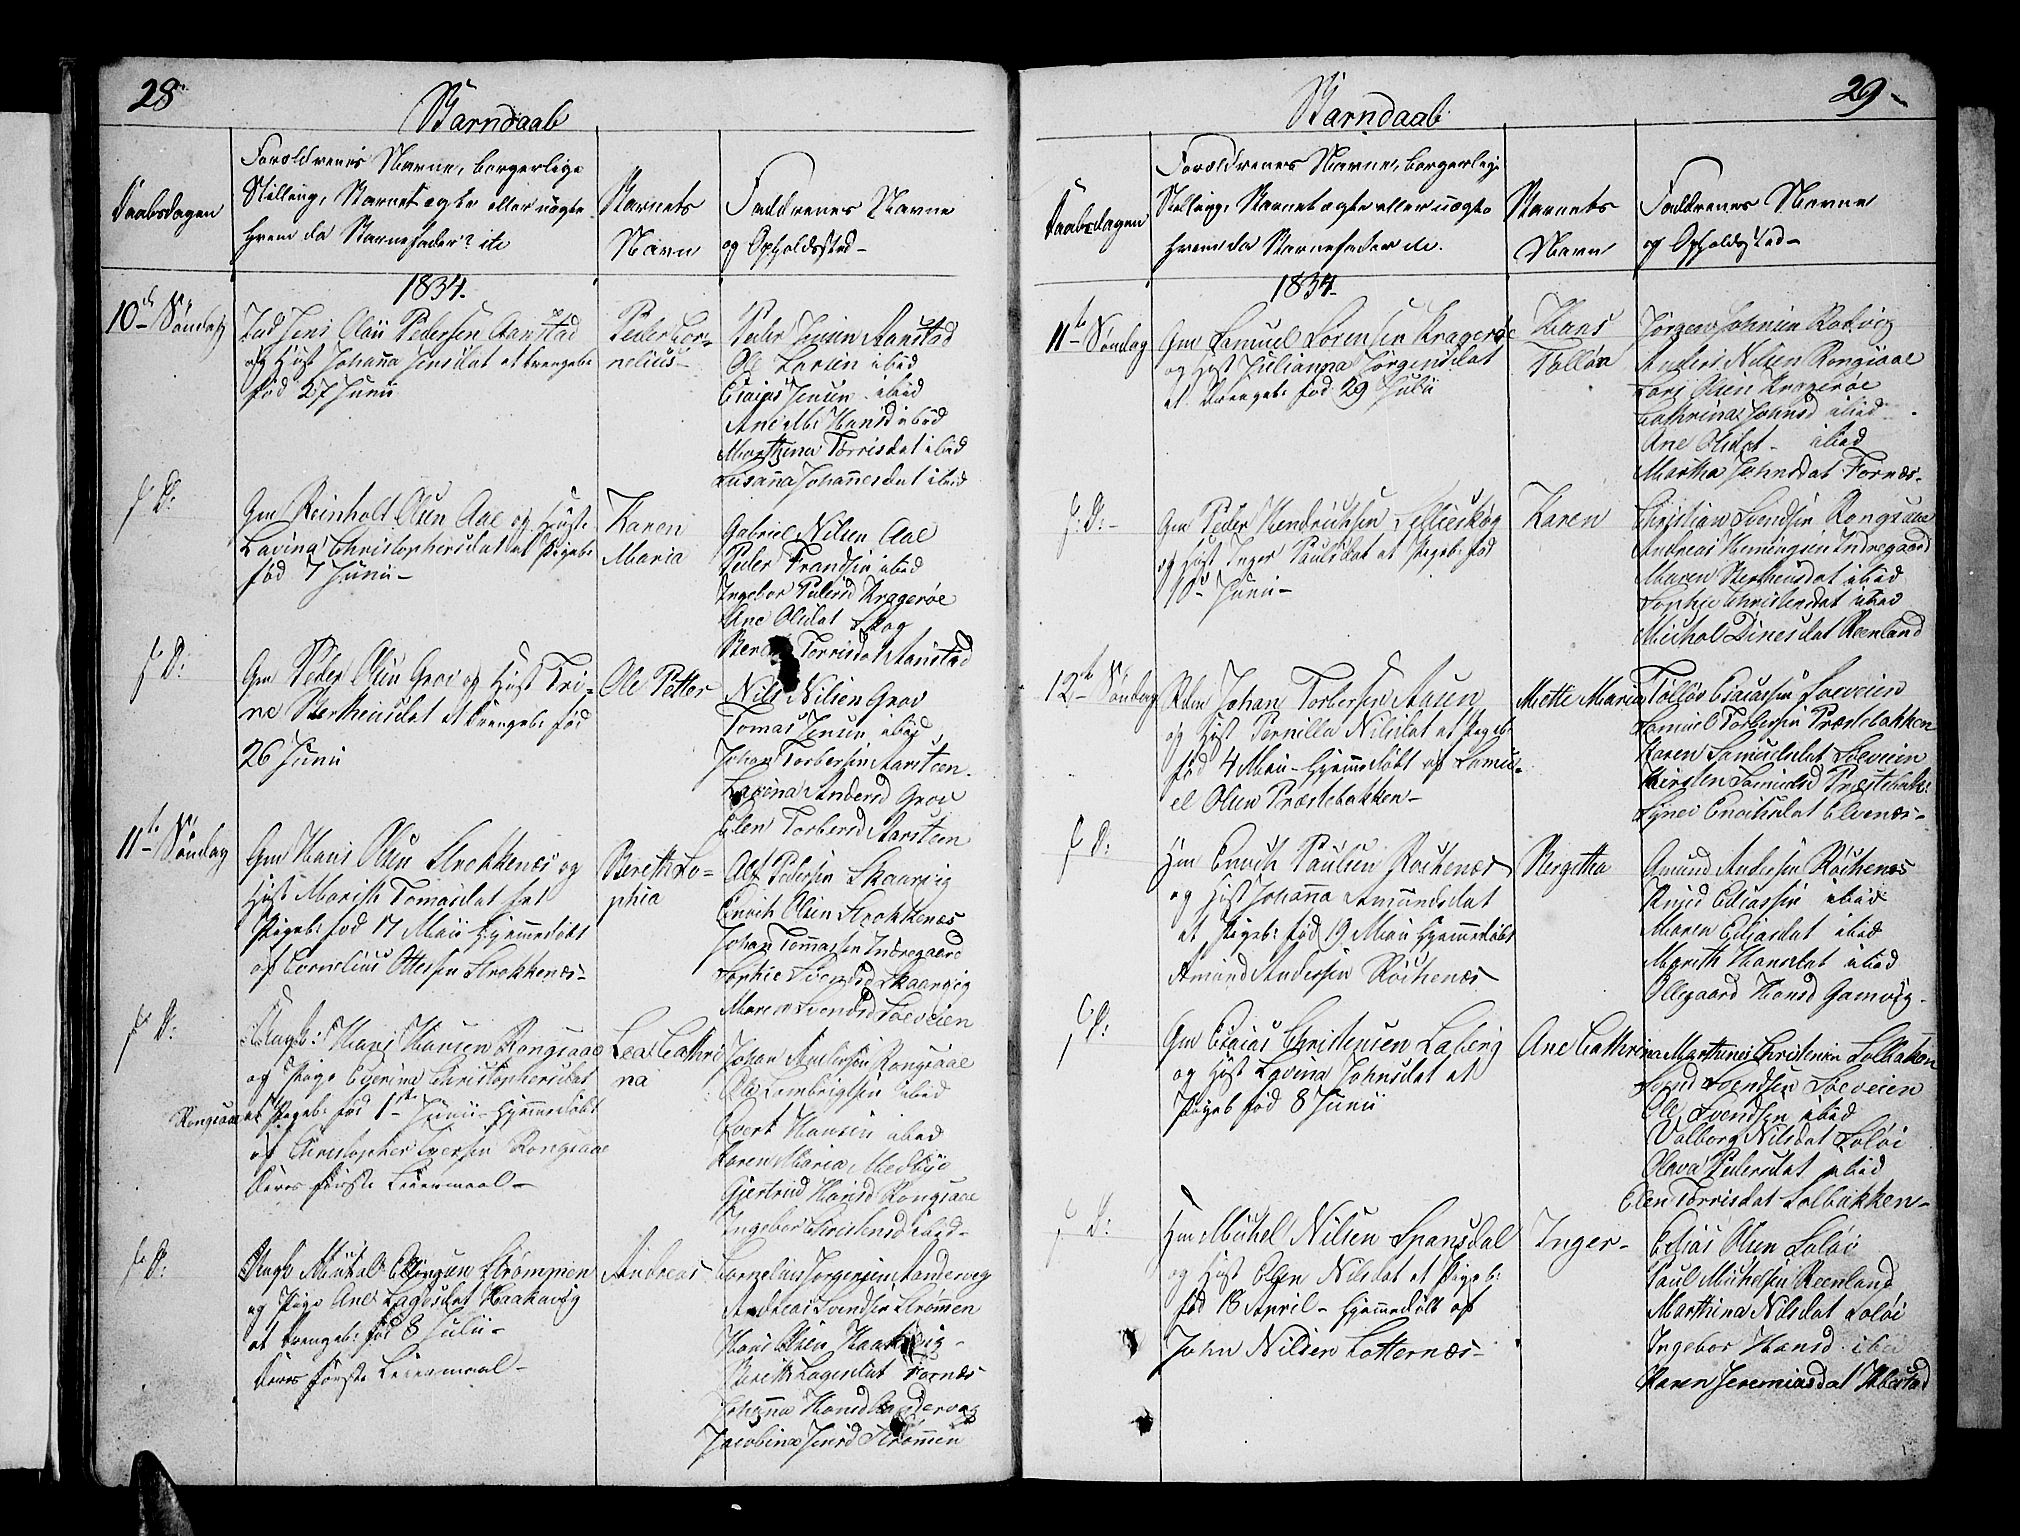 28
Barndaab
Daabsdagen
Forældrenes Navne, borgerlige
Stilling, Barnet ægte eller uægte
hvem da Barnefader? etc
Barnets
Navn
Faddrenes Navne
og Opholdssted
1834.
10de Søndag
Jens Olaii Pedersen Aanstad
og Hust Johanna Jensdat et Drengeb:
fød 27 Junii
Peder Cor-
nelius
Peder Jensen Aanstad
Ol Larsen ibid
Esaias Jensen ibid
Ane Hansd ibid
Marthina Torrisdat ibid
Susanna Johannesdat ibid
f D:
Gm Reinholt Olsen Aae og Hust
Lavina Christophersdat et Pigeb:
fød 7 Junii
Karen
Maria
Gabriel Nilsen Aae
Peder Frandsen ibid
Ingebor Pedersd Kragerøe
Ane Olsdat Skog
Torrisdat Aanstad
f D:
Gm Peder Olsen Grov og Hust Tri-
ne Berthensdat et Drengeb: fød
26 Junii
Ole Petter
Nils Nilsen Grov
Tomas Jensen ibid
Johan Torbersen Aarsteen
Lavina Andersd Grov
Elen Torbersd Aarsteen
11te Søndag
Gm Hans Olsen Strokkenæs og
Hust Marith Tomasdat et
Pigeb: fød 17 Maii Hjemmedøbt
af Cornelius Ottesen Strokkenæs
Berith So-
phia
Alf Pedersen Skaarvig
Enoch Olsen Strokkenæs
Johan Tomassen Indregaard
Sophie Svendsd Skaarvig
Maren Svendsd Soeveien
f D:
Ungk: Hans Hansen Rongsaae
og Pige Christophersdat
Rongsaae et Pigeb: fød 1ste Junii Hjemmedøbt
af Christopher Iversen Rongsaae
Deres første Leiermaal
Lea Cathri
na
Johan Andersen Rongsaae
Ole Lambrigtsen ibid
Evert Hansen ibid
Karen Maria Medbye
Gjertrud Hansd Rongsaae
Ingebor Christensd ibid
f D:
Ungk Mikal Strømmen
og Pige Ane Lagesdat Haakavig
et Drengeb: fød 8 Julii
Deres første Leiermaal
Andreas
Cornelius Jørgensen Sandevog
Andreas Svendsen Strømmen
Hans Olsen Haakavig
Berith Lagesdat Fornæs
Johanna Hansd Sandevog
Jacobina Jensd Strømmen
29
Barndaab
Daabsdagen
Forældrenes Navne, borgerlige
Stilling, Barnet ægte eller uægte
hvem da Barnefader etc.
Barnets
Navn
Faddrenes Navne
og Opholdsted
1834.
11te Søndag
Gm Samuel Sørensen Kragerøe
og Hust Julianna Jørgensdat
et Drengeb: fød 29 Julii
Hans
Tolløv
Jørgen Johnsen Rotvig
Anders Nilsen Rongsaae
Lars Olsen Kragerøe
Cathrina Johnsd ibid
Ane Olsdat ibid
Martha Johnsdat Fornæs
f: D:
Gm Peder Hendrichsen Lillieskog
og Hust Inger Paulsdat et Pigeb: fød
10 Junii
Karen
Christian Svendsen Rongsaae
Andreas Hemingsen Indregaard
Maren Berthensdat ibid
Sophie Christensdat ibid
Michal Dinesdat Reenland
12te Søndag
Johan Torbersen Aasen
og Hust Pernilla Nilsdat et Pigeb
fød 4 Maii Hjemmedøbt af Samu-
el Olsen Præstebakken
Mette Maria
Tolløv Esaiassen Soeveien
Samuel Torbersen Præstebakken
Karen Samuelsdat Soeveien
Kirsten Samuelsd Præstebak:
Enochsdat Elvenæs
f D:
Hm Enoch Paulsen Rochenæs
og Hust Johanna Amundsdat
et Pigeb: fød 19 Maii Hjemmedøbt
Amund Andersen Rochenæs
Bergitha
Amund Andersen Rochenæs
Knud Eliassen ibid
Maren Eliasdat ibid
Marith Hansdat ibid
Ollegaard Hansd Gamvig
f D:
Gm Esaias Christensen Laberg
og Hust Lovina Johnsdat et
Pigeb fød 8 Junii
Ane Cathrina
Marthines Christensen Solbakken
Svend Svendsen Soeveien
Ole Svendsen ibid
Valborg Nilsdat Soløi
Olava Pedersdat ibid
Elen Torrisdat Solbakken
f D:
Hm Michel Nilsen Spansdal
og Hust Elen Nilsdat et Pigeb:
fød 18 April Hjemmedøbt af
John Nilsen Lotternæs
Inger
Elias Olsen Soløi
Paul Michelsen Reenland
Marthina Nilsdat Soløi
Ingebor Hansd ibid
Karen Jeremiasdat Ibbestad